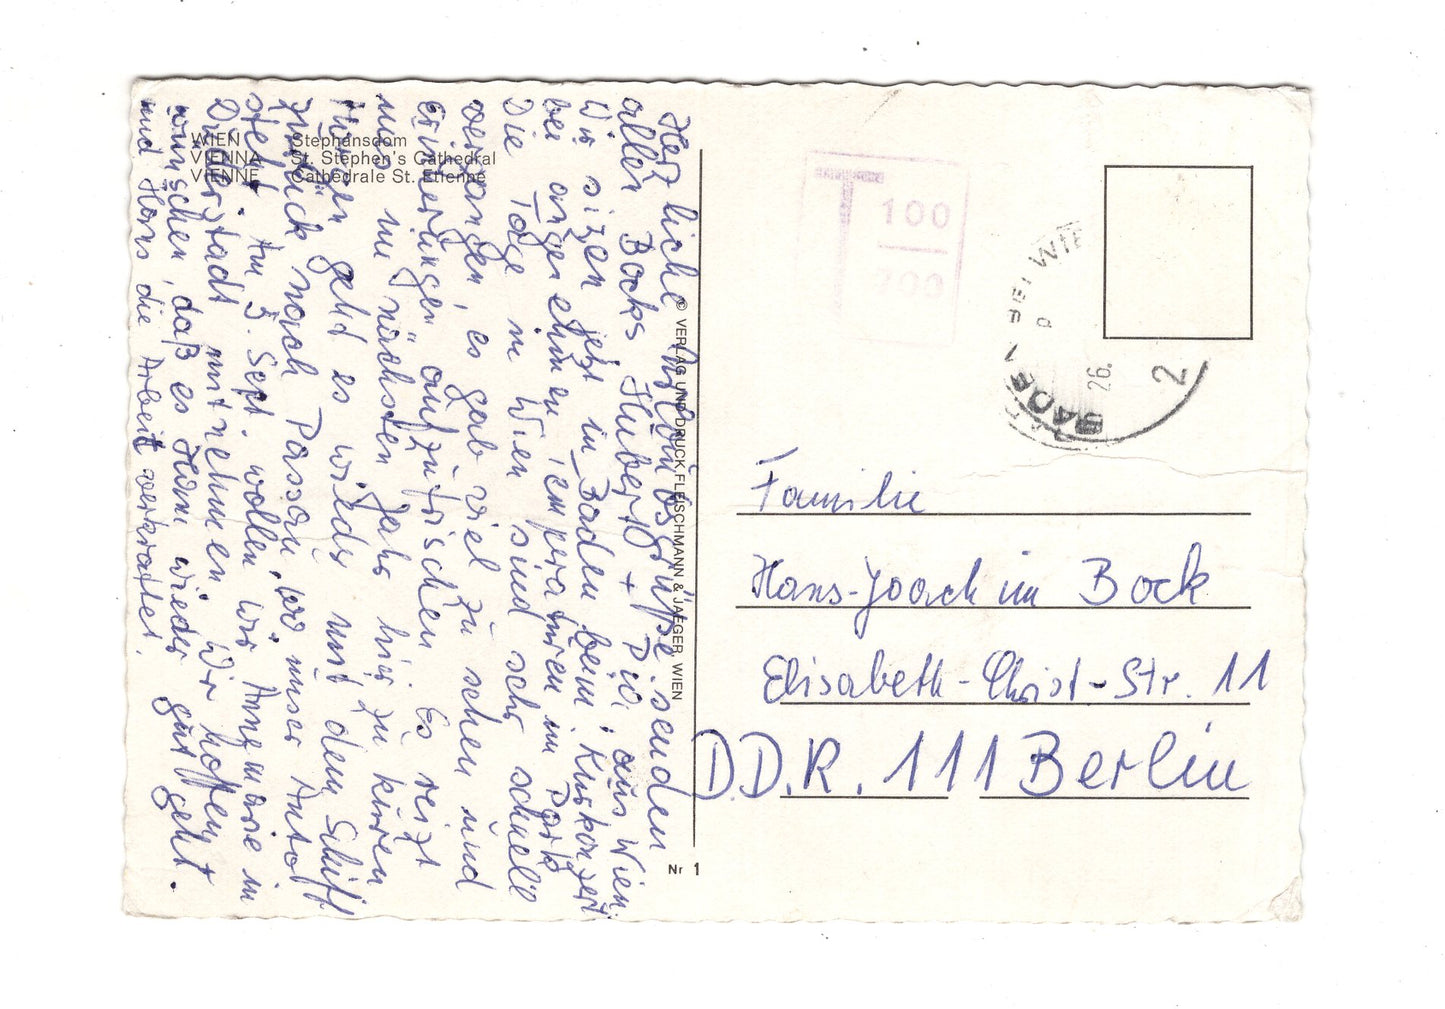 WIEN Stephansdom
VIENNA St. Stephen's Cathedral
VIENNE Cathédrale St. Etienne
Herzliche Urlaubsgrüße senden
allen Bocks Hubert + Pia, aus Wien.
Wir sizen jetzt in Baden beim Kurkonzert
bei angenehmen Temperaturen im Park
Die Tage in Wien sind sehr schnell
vergangen, es gab viel zu sehen und
Erinnerungen aufzufrischen. Es reizt
uns im nächsten Jahr hier zu kuren
Morgen geht es wieder mit dem Schiff
zurück nach Passau, wo unser Auto
steht. Am 3. Sept. wollen wir Annemarie in
mitnehmen. Wir hoffen
wünschen, daß es Hans wieder gut geht.
und Hans die Arbeit verkraftet.
© VERLAG UND DRUCK FLEISCHMANN & JAEGER, WIEN
Nr 1
T 100
700
BADEN BEI WIE
26.
2
Familie
Hans-Joachim Bock
Elisabeth-Christ-Str. 11
D.D.R. 111 Berlin